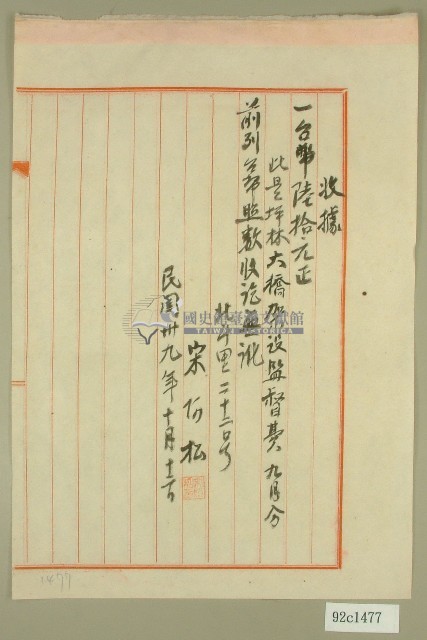 收據
一台幣陸拾元正
此是坪林大橋架設監督費 九月分
前列台幣照數收訖無訛
里二十二号
宋阿松
民國卅九年十月十一日
國史館臺灣文獻館
TAIWAN HISTORICA
1477
92c1477